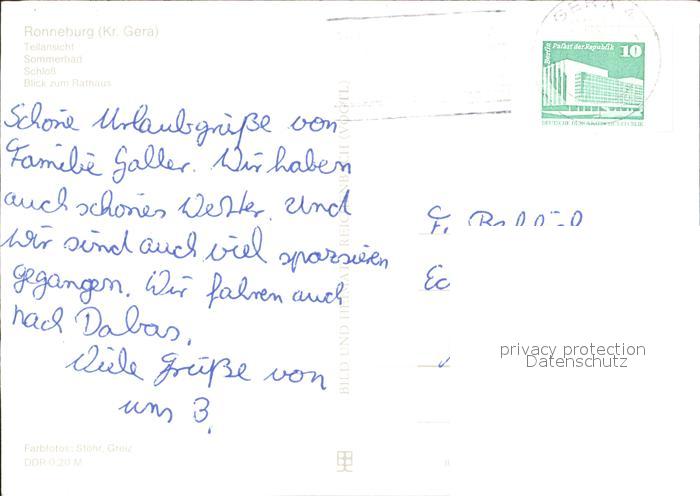 Ronneburg (Kr. Gera)
Teilansicht
Sommerbad
Schloß
Blick zum Rathaus
Schöne Urlaubsgrüße von
Familie Galler. Wir haben
auch schönes Wetter. Und
wir sind auch viel sparsieren
gegangen. Wir fahren auch
nach Dabas.
Viele Grüße von
uns 3.
Farbfotos: Stöhr, Greiz
DDR 0,20 M
BILD UND HEIMAT REICHENBACH (VOGTL)
GERA
Berlin Palast der Republik 10
DEUTSCHE DEMOKRATISCHE REPUBLIK
F.
privacy protection
Datenschutz